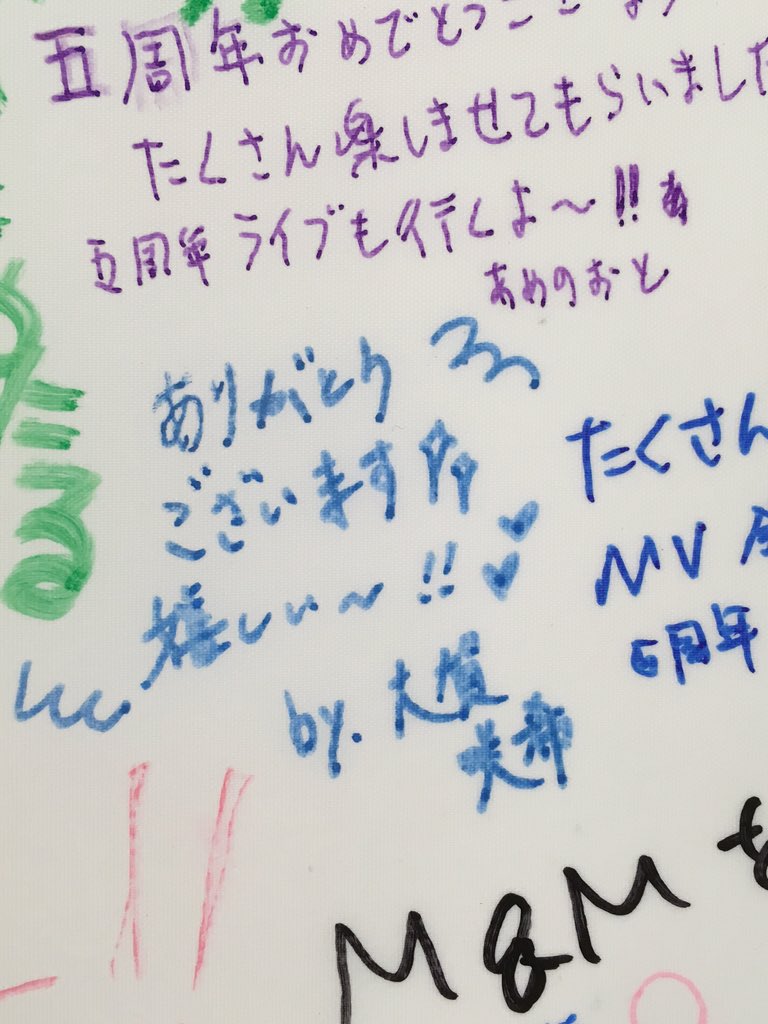 五周年おめでとうござ
たくさん楽しませてもらいました
五周年ライブも行くよ〜!!
あめのおと
ありがとう
ございます
嬉しい〜!!
by.
たくさん
MV
5周年
M&M